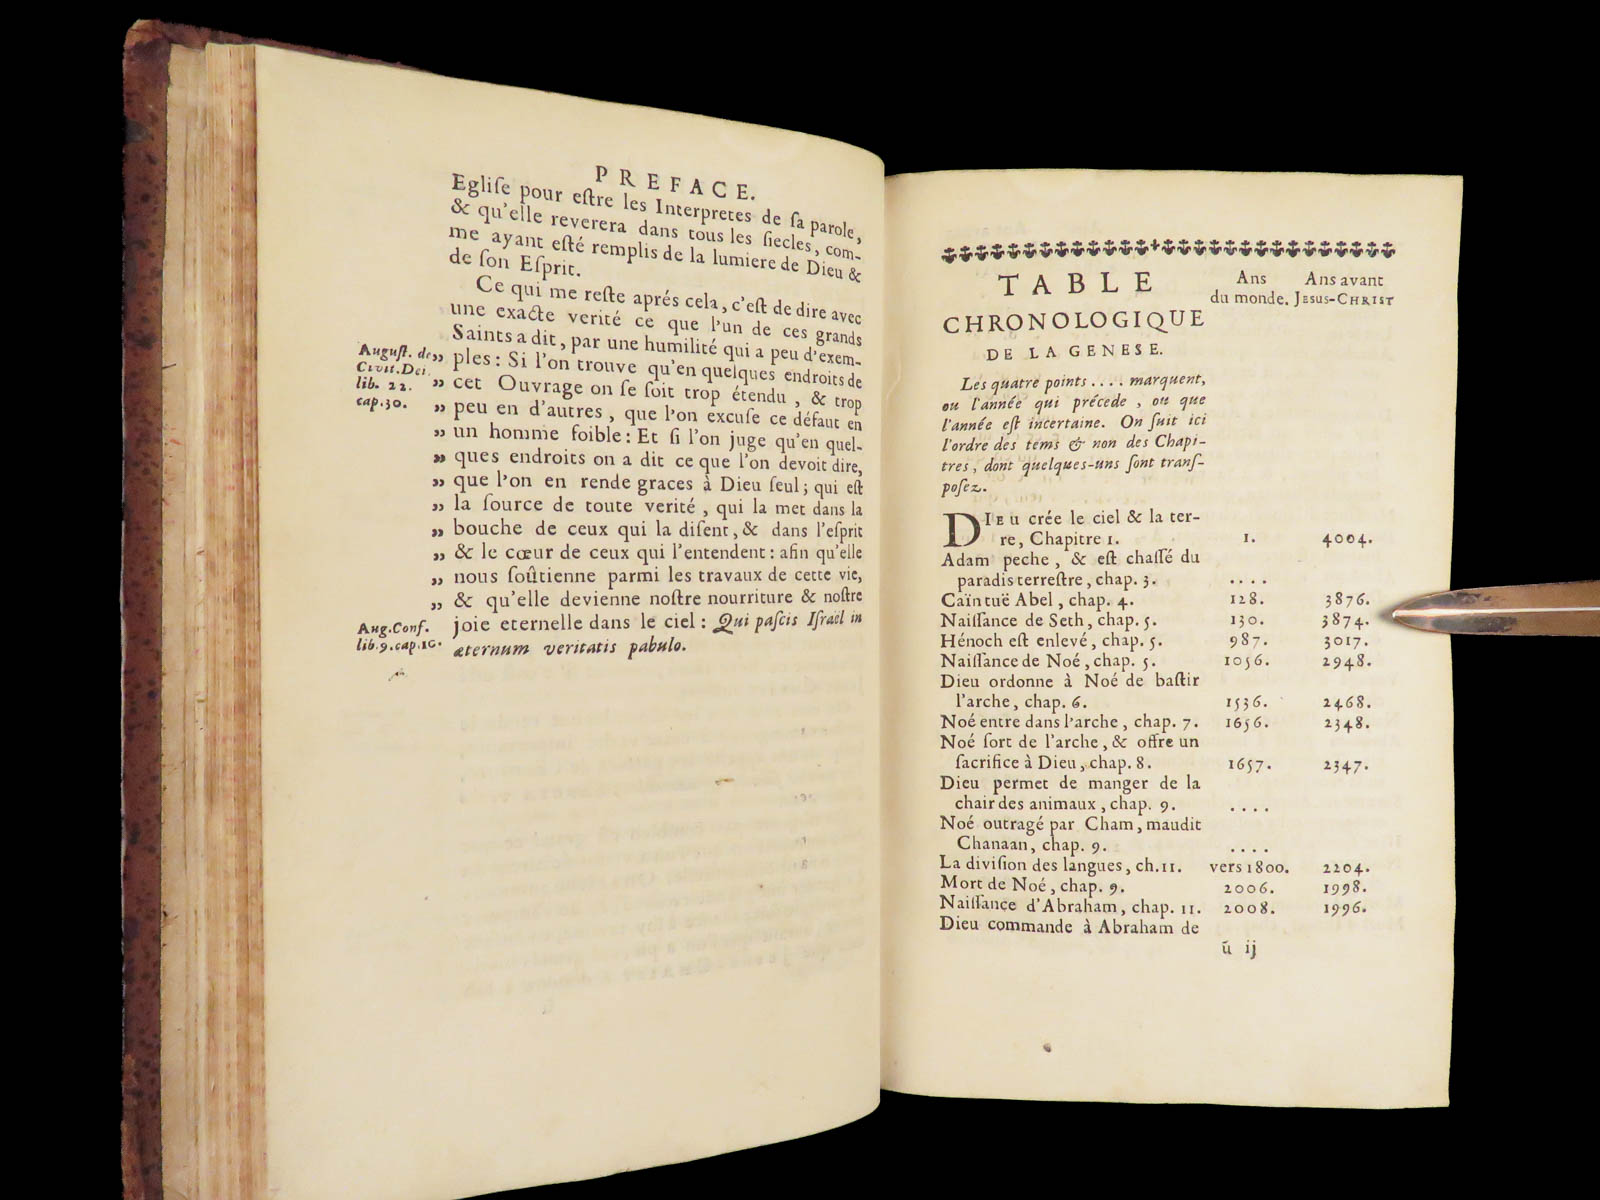 PREFACE.
Egliſe pour eſtre les Interpretes de ſa parole,
& qu'elle reverera dans tous les ſiecles, com-
me ayant eſté remplis de la lumiere de Dieu &
de ſon Eſprit.
Ce qui me reſte aprés cela, c'eſt de dire avec
une exacte verité ce que l'un de ces grands
Saints a dit, par une humilité qui a peu d'exem-
Auguſt. de „ ples : Si l'on trouve qu'en quelques endroits de
Civit. Dei. „ cet Ouvrage on ſe ſoit trop étendu, & trop
lib. 22. „ peu en d'autres, que l'on excuſe ce défaut en
cap. 30. „ un homme foible : Et ſi l'on juge qu'en quel-
„ ques endroits on a dit ce que l'on devoit dire,
„ que l'on en rende graces à Dieu ſeul ; qui eſt
„ la ſource de toute verité, qui la met dans la
„ bouche de ceux qui la diſent, & dans l'eſprit
„ & le cœur de ceux qui l'entendent : afin qu'elle
„ nous ſoûtienne parmi les travaux de cette vie,
„ & qu'elle devienne noſtre nourriture & noſtre
Aug. Conf. joie eternelle dans le ciel : Qui paſcis Iſraël in
lib. 9. cap. 10. æternum veritatis pabulo.
TABLE
CHRONOLOGIQUE
DE LA GENESE.
Ans du monde.
Ans avant JESUS-CHRIST
Les quatre points . . . . marquent,
ou l'année qui précede, ou que
l'année eſt incertaine. On ſuit ici
l'ordre des tems & non des Chapi-
tres, dont quelques-uns ſont tranſ-
poſez.
DIEU crée le ciel & la ter-
re, Chapitre 1. 1. 4004.
Adam peche, & eſt chaſſé du
paradis terreſtre, chap. 3. . . . .
Caïn tuë Abel, chap. 4. 128. 3876.
Naiſſance de Seth, chap. 5. 130. 3874.
Hénoch eſt enlevé, chap. 5. 987. 3017.
Naiſſance de Noé, chap. 5. 1056. 2948.
Dieu ordonne à Noé de baſtir
l'arche, chap. 6. 1536. 2468.
Noé entre dans l'arche, chap. 7. 1656. 2348.
Noé ſort de l'arche, & offre un
ſacrifice à Dieu, chap. 8. 1657. 2347.
Dieu permet de manger de la
chair des animaux, chap. 9. . . . .
Noé outragé par Cham, maudit
Chanaan, chap. 9. . . . .
La diviſion des langues, ch. 11. vers 1800. 2204.
Mort de Noé, chap. 9. 2006. 1998.
Naiſſance d'Abraham, chap. 11. 2008. 1996.
Dieu commande à Abraham de
ũ ij